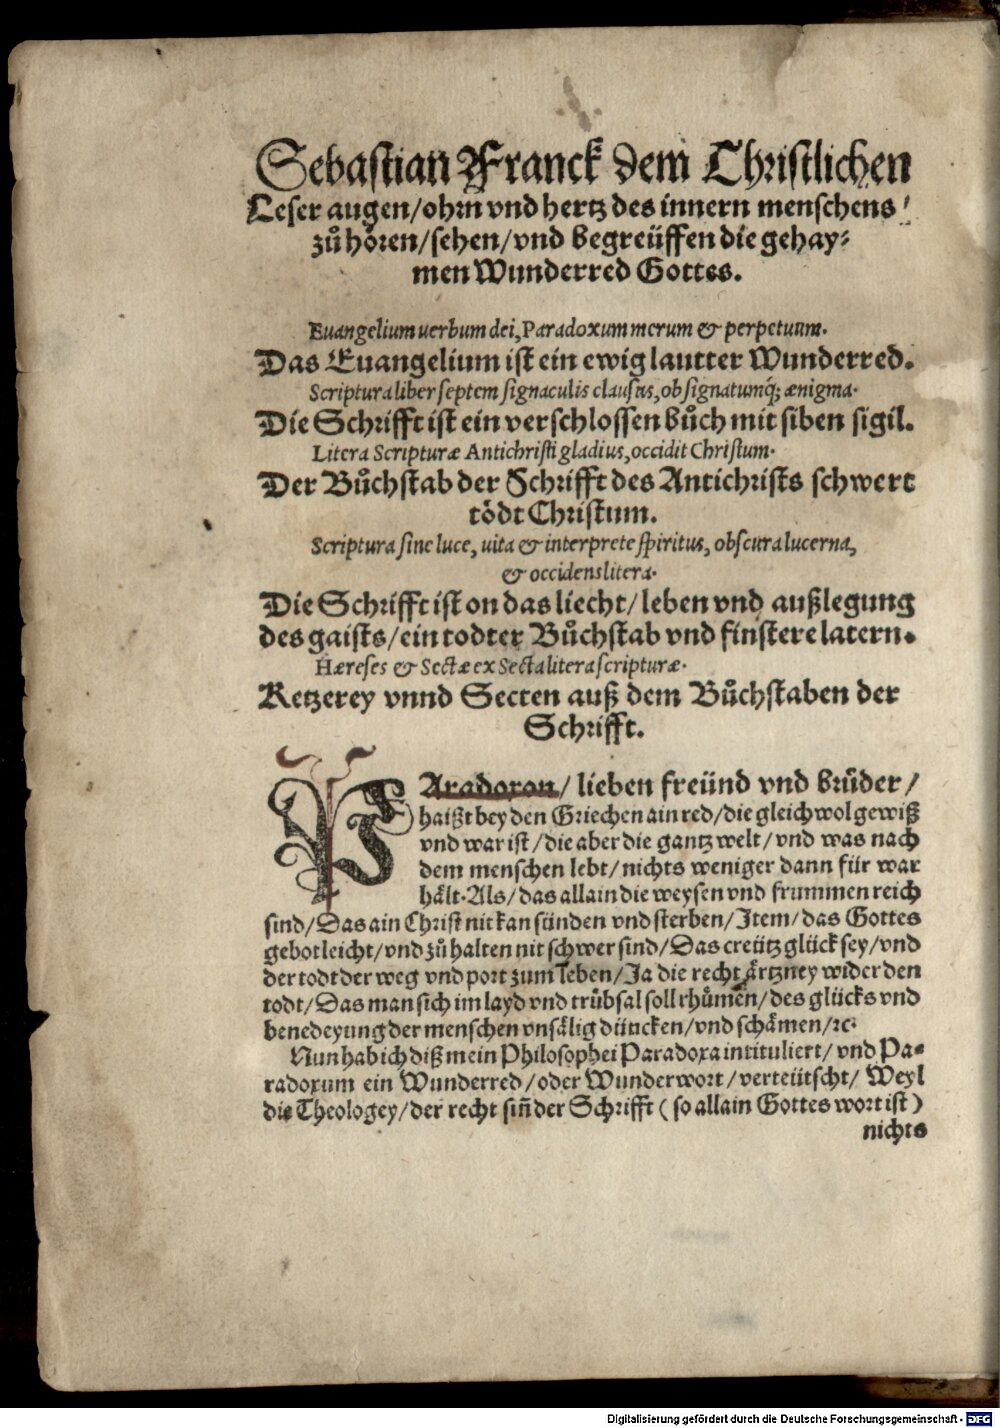 Sebastian Franck dem Christlichen
Leser augen/ohrn vnd hertz des innern menschens/
zů hören/sehen/vnd begreüffen die gehay⸗
men Wunderred Gottes.
Euangelium uerbum dei, Paradoxum merum & perpetuum.
Das Euangelium ist ein ewig lautter Wunderred.
Scriptura liber septem signaculis clausus, obsignatumq́; ænigma.
Die Schrifft ist ein verschlossen bůch mit siben sigil.
Litera Scripturæ Antichristi gladius, occidit Christum.
Der Bůchstab der Schrifft des Antichrists schwert
tödt Christum.
Scriptura sine luce, uita & interprete spiritus, obscura lucerna,
& occidens litera.
Die Schrifft ist on das liecht/leben vnd außlegung
des gaists/ein todter Bůchstab vnd finstere latern.
Hæreses & Sectæ ex Secta litera scripturæ.
Ketzerey vnnd Secten auß dem Bůchstaben der
Schrifft.
PAradoxon/ lieben freünd vnd brůder/
haißt bey den Griechen ain red/die gleich wol gewiß
vnd war ist/die aber die gantz welt/vnd was nach
dem menschen lebt/nichts weniger dann für war
hält. Als/das allain die weysen vnd frummen reich
sind/Das ain Christ nit kan sünden vnd sterben/Item/das Gottes
gebot leicht/vnd zů halten nit schwer sind/Das creütz glück sey/vnd
der todt der weg vnd port zum leben/Ja die recht ärtzney wider den
todt/Das man sich im layd vnd trůbsal soll rhůmen/des glücks vnd
benedeyung der menschen vnsälig düncken/vnd schämen/ꝛc.
Nun hab ich diß mein Philosophei Paradoxa intituliert/vnd Pa⸗
radoxum ein Wunderred/oder Wunderwort/verteütscht/Weyl
die Theologey/der recht siñ der Schrifft (so allain Gottes wort ist)
nichts
Digitalisierung gefördert durch die Deutsche Forschungsgemeinschaft - DFG